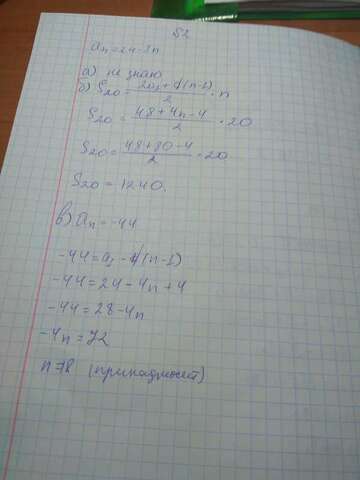 52
aₙ=24-3n
а) не знаю
б) S₂₀ = (2a₁+4(n-1))/2 · n
S₂₀ = (48+4n-4)/2 · 20
S₂₀ = (48+80-4)/2 · 20
S₂₀ = 1240.
в) aₙ = -44
-44=a₁-4(n-1)
-44=24-4n+4
-44=28-4n
-4n=72
n=18 (принадлежит)